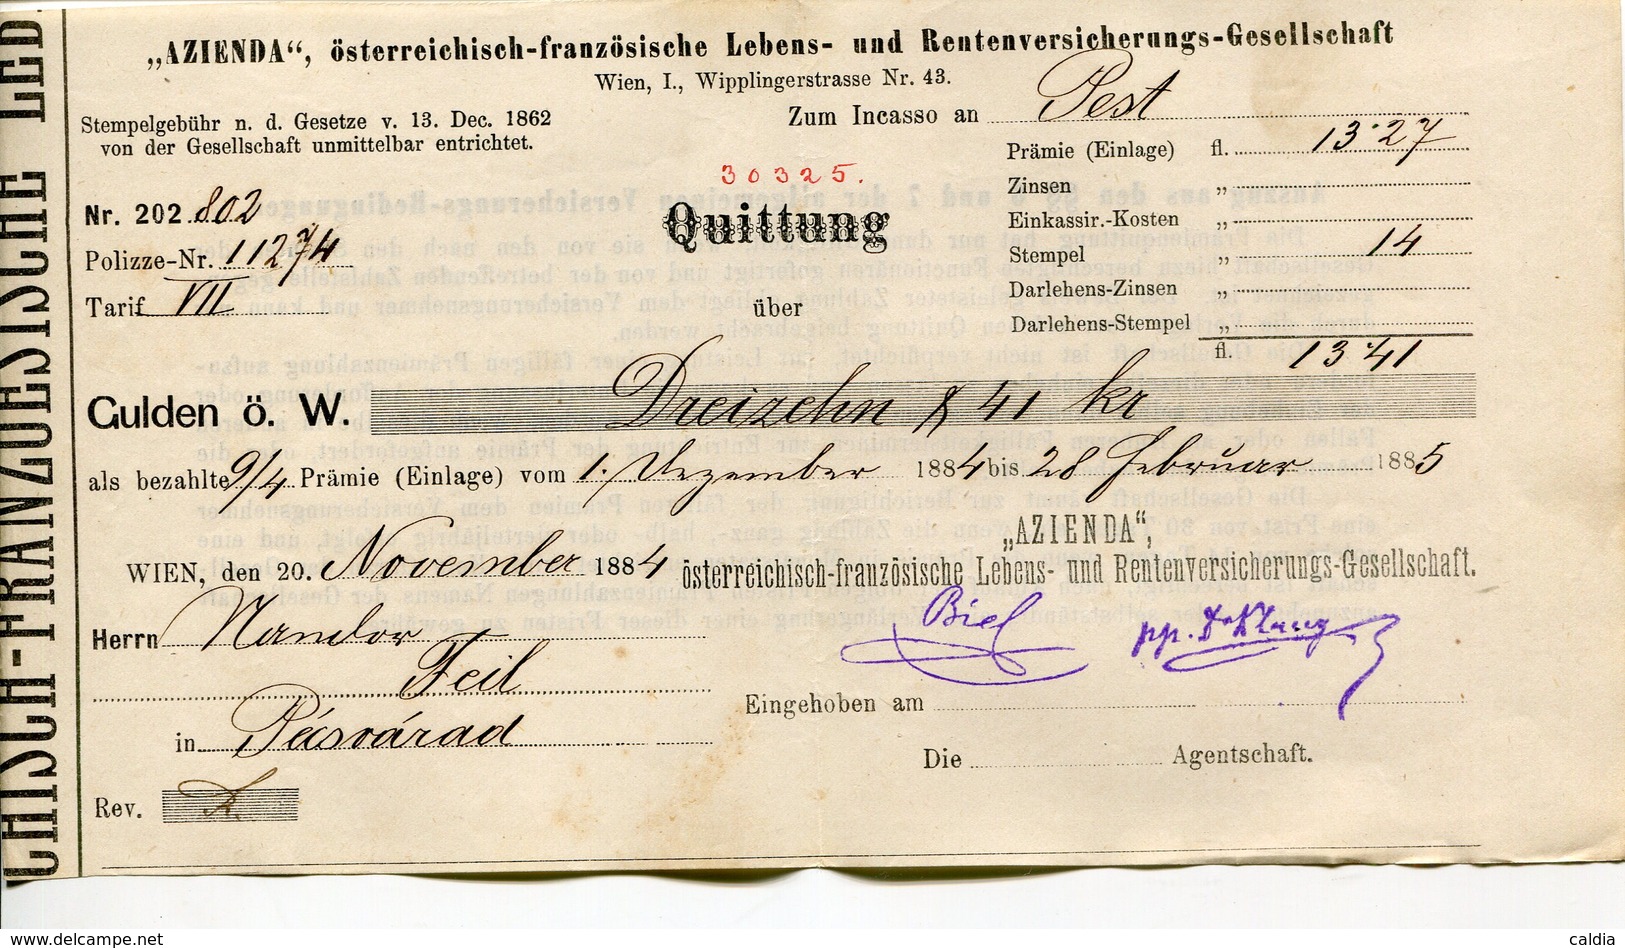 „AZIENDA“, österreichisch-französische Lebens- und Rentenversicherungs-Gesellschaft
Wien, I., Wipplingerstrasse Nr. 43.
Stempelgebühr n. d. Gesetze v. 13. Dec. 1862
von der Gesellschaft unmittelbar entrichtet.
Zum Incasso an Pest
Prämie (Einlage) fl. 13·27
30325.
Zinsen „
Nr. 202.802
Quittung
Einkassir.-Kosten „
Polizze-Nr. 11274
Stempel „ 14
Darlehens-Zinsen „
Tarif VII
über
Darlehens-Stempel „
fl. 13·41
Gulden ö. W. Dreizehn & 41 kr
als bezahlte 9/4 Prämie (Einlage) vom 1. Dezember 1884 bis 28 Februar 1885
„AZIENDA“,
WIEN, den 20. November 1884
österreichisch-französische Lebens- und Rentenversicherungs-Gesellschaft.
Biel
pp.
Herrn Nandor
Feil
Eingehoben am
in Pécsvárad
Die Agentschaft.
Rev.
CHISCH-FRANZOESISCHE LEB
delcampe.net
caldia